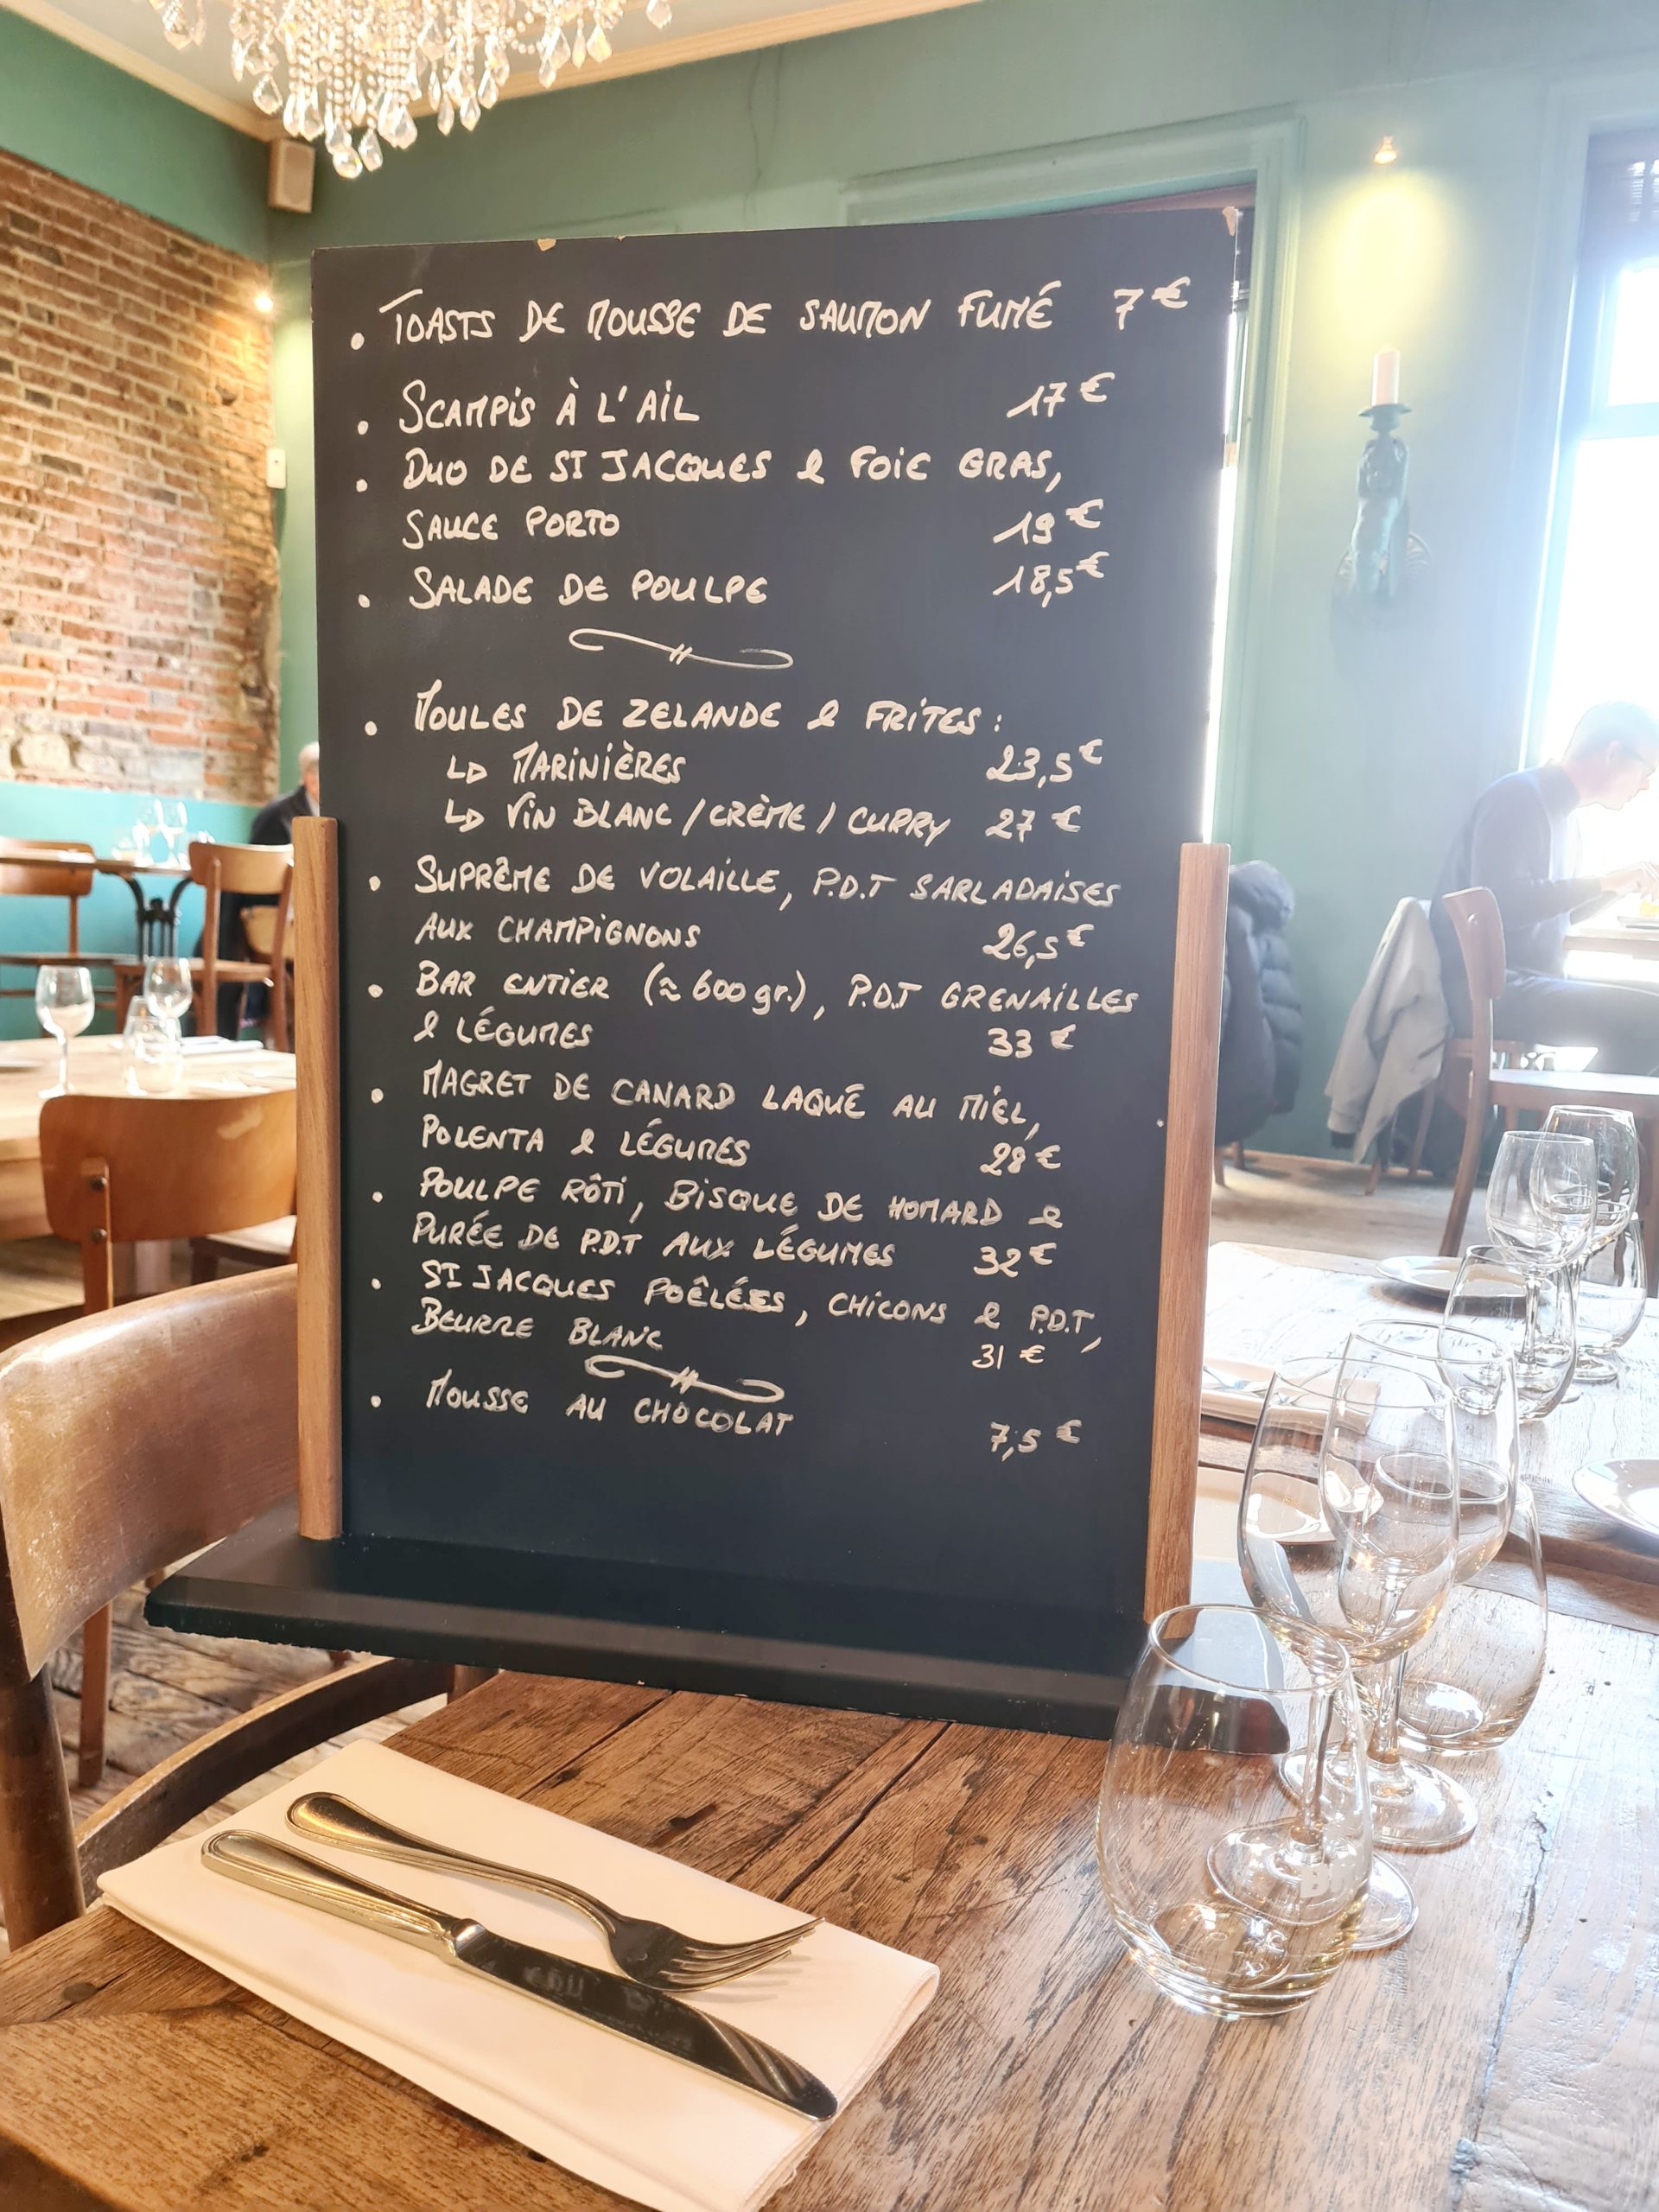 • TOASTS DE MOUSSE DE SAUMON FUMÉ 7€
• SCAMPIS À L'AIL 17€
• DUO DE ST JACQUES & FOIE GRAS,
SAUCE PORTO 19€
• SALADE DE POULPE 18,5€
• MOULES DE ZELANDE & FRITES :
↳ MARINIÈRES 23,5€
↳ VIN BLANC / CRÈME / CURRY 27€
• SUPRÊME DE VOLAILLE, P.D.T SARLADAISES
AUX CHAMPIGNONS 26,5€
• BAR ENTIER (≈ 600 gr.), P.D.T GRENAILLES
& LÉGUMES 33€
• MAGRET DE CANARD LAQUÉ AU MIEL,
POLENTA & LÉGUMES 28€
• POULPE RÔTI, BISQUE DE HOMARD &
PURÉE DE P.D.T AUX LÉGUMES 32€
• ST JACQUES POÊLÉES, CHICONS & P.D.T,
BEURRE BLANC 31€
• MOUSSE AU CHOCOLAT 7,5€